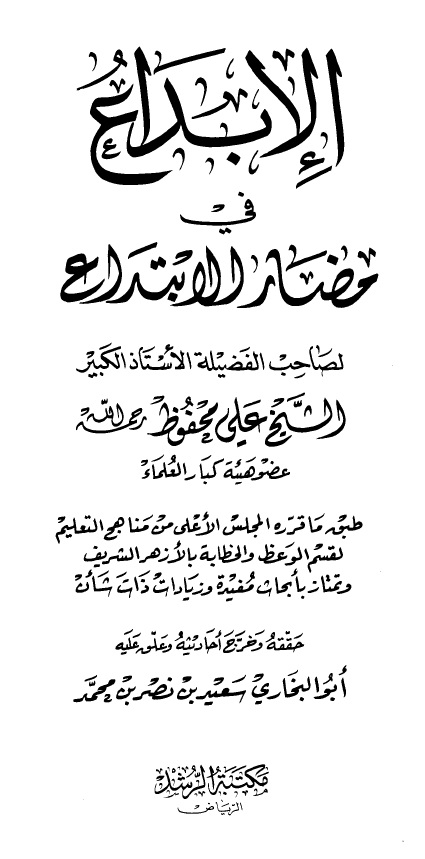 الإبداع
في
مضار الابتداع
لصاحب الفضيلة الأستاذ الكبير
الشيخ علي محفوظ رحمه الله
عضو هيئة كبار العلماء
طبق ما قرره المجلس الأعلى من مناهج التعليم
لقسم الوعظ والخطابة بالأزهر الشريف
وتمتاز بأبحاث مفيدة وزيادات ذات شأن
حققه وخرج أحاديثه وعلق عليه
أبو البخاري سعيد بن نصر بن محمد
مكتبة الرشد
الرياض